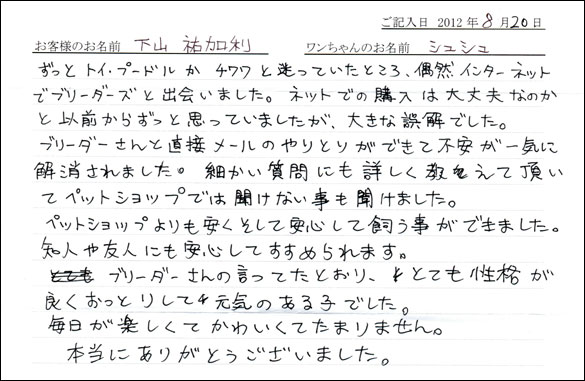 ご記入日 2012年8月20日
お客様のお名前 下山 祐加利 ワンちゃんのお名前 シュシュ
ずっとトイ・プードルかチワワと迷っていたところ、偶然インターネット
でブリーダーズと出会いました。ネットでの購入は大丈夫なのか
と以前からずっと思っていましたが、大きな誤解でした。
ブリーダーさんと直接メールのやりとりができて不安が一気に
解消されました。細かい質問にも詳しく教えて頂い
てペットショップでは聞けない事も聞けました。
ペットショップよりも安くそして安心して飼う事ができました。
知人や友人にも安心してすすめられます。
ブリーダーさんの言ってたとおり、とても性格が
良くおっとりして元気のある子でした。
毎日が楽しくてかわいくてたまりません。
本当にありがとうございました。